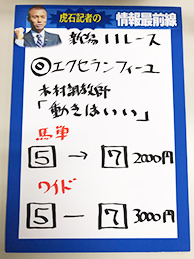 虎石記者の
情報最前線
新潟11レース
◎エクセランフィーユ
木村調教師
「動きはいい」
馬単
5→7 2000円
ワイド
5-7 3000円